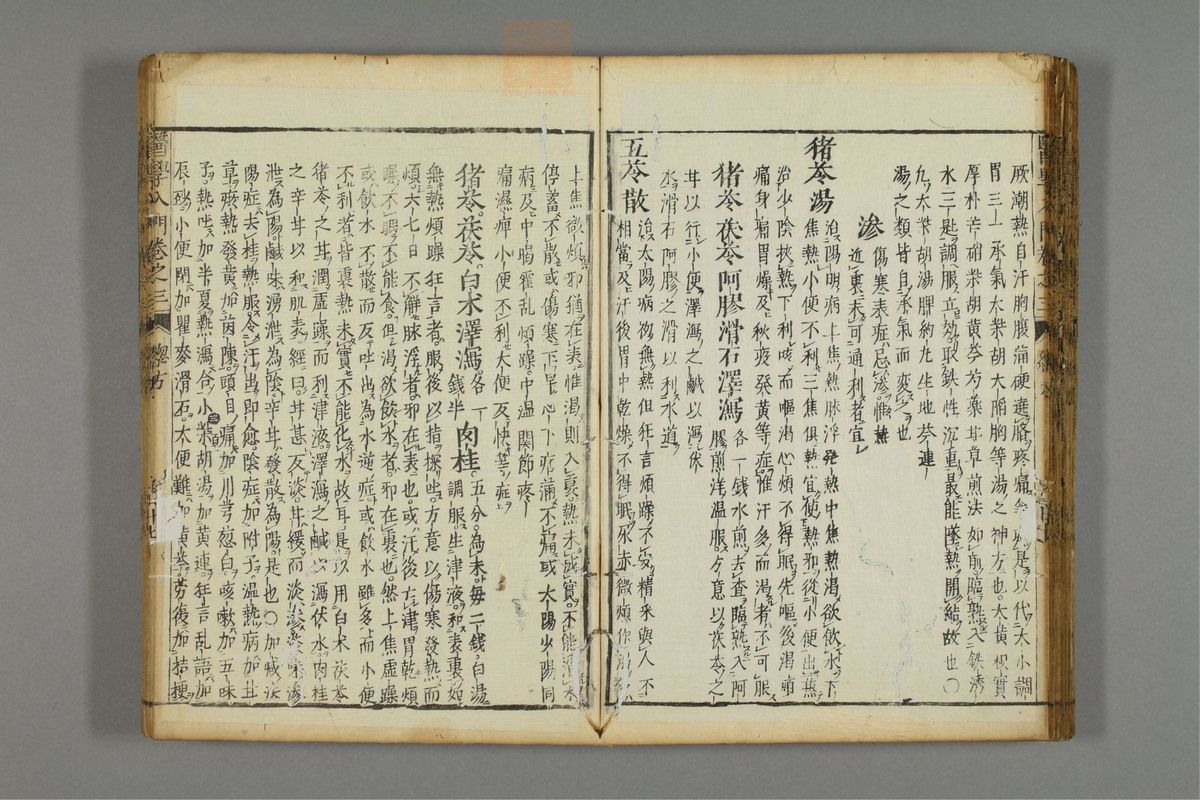 厥潮熱自汗胸腹滿硬遶臍疼痛是以代大小調
胃三承氣大柴胡大陷胸等湯之神方也大黃枳實
厚朴芒硝柴胡黃芩芍藥甘草煎法如前臨熟入鉄溏
水三是調服立効取鉄性沉重最能墜熱開結故也〇
九大柴胡湯脾約丸生地芩連
湯之類皆自承氣而変也
滲
傷寒表症忌滲惟熱
近裏未可通利者宜
猪苓湯
治陽明病上焦熱脉浮発熱中焦熱渇欲飲水下
焦熱小便不利三焦俱熱宜使熱邪從小便出兼
治少陰挾熱下利咳而嘔渇心煩不得眠先嘔後渇
痛身痛胃燥及秋疫発黃等症惟汗多而渇者不可服
猪苓茯苓阿膠滑石澤瀉
各一錢水煎去査臨熟入阿
膠煎洋温服今意以茯苓之
甘以行小便澤瀉之鹹以瀉伏
水滑石阿膠之滑以利水道
五苓散
治太陽病初無熱但狂言煩躁不安精采與人不
相當及汗後胃中乾燥不得眠死赤微煩
上焦微煩邪猶在表惟渇則入裏熱未實不能消水
停蓄不散或傷寒下早心下痞滿不痛或太陽少陽同
病及中暍霍乱煩躁中温関節疼
痛濕痺小便不利大便反快等症
猪苓茯苓白朮澤瀉
各一
錢半
肉桂
五分為末毎二錢白湯
調服生津液和表裏如
無熱煩躁狂言者服後以指探吐方意以傷寒發熱而
煩六七日不解脉浮者邪在表也或汗後亡津胃乾煩
躁不眠不能食但渇欲飲水者邪在裏也然上焦虛躁
或飲水不散而反吐出為水逆症或飲水雖多而小便
不利者皆裏熱未實不能化水故耳是以用白朮茯苓
猪苓之甘潤虛躁而利津液澤瀉之鹹以瀉伏水肉桂
之辛甘以和肌表經曰甘甚反淡甘緩而淡滲
泄為陽鹹味湧泄為陰辛甘發散為陽是也〇加減法
陽症去桂熱服令汗出即愈陰症加附子温熱病加甘
草痎熱發黃加茵陳頭目痛加川芎葱白咳嗽加五味
子熱吐加半夏熱瀉合小柴胡湯加黃連狂言乱語加
辰砂小便閉加瞿麥滑石大便難加黃芩芳後加桔梗
醫學入門卷之三